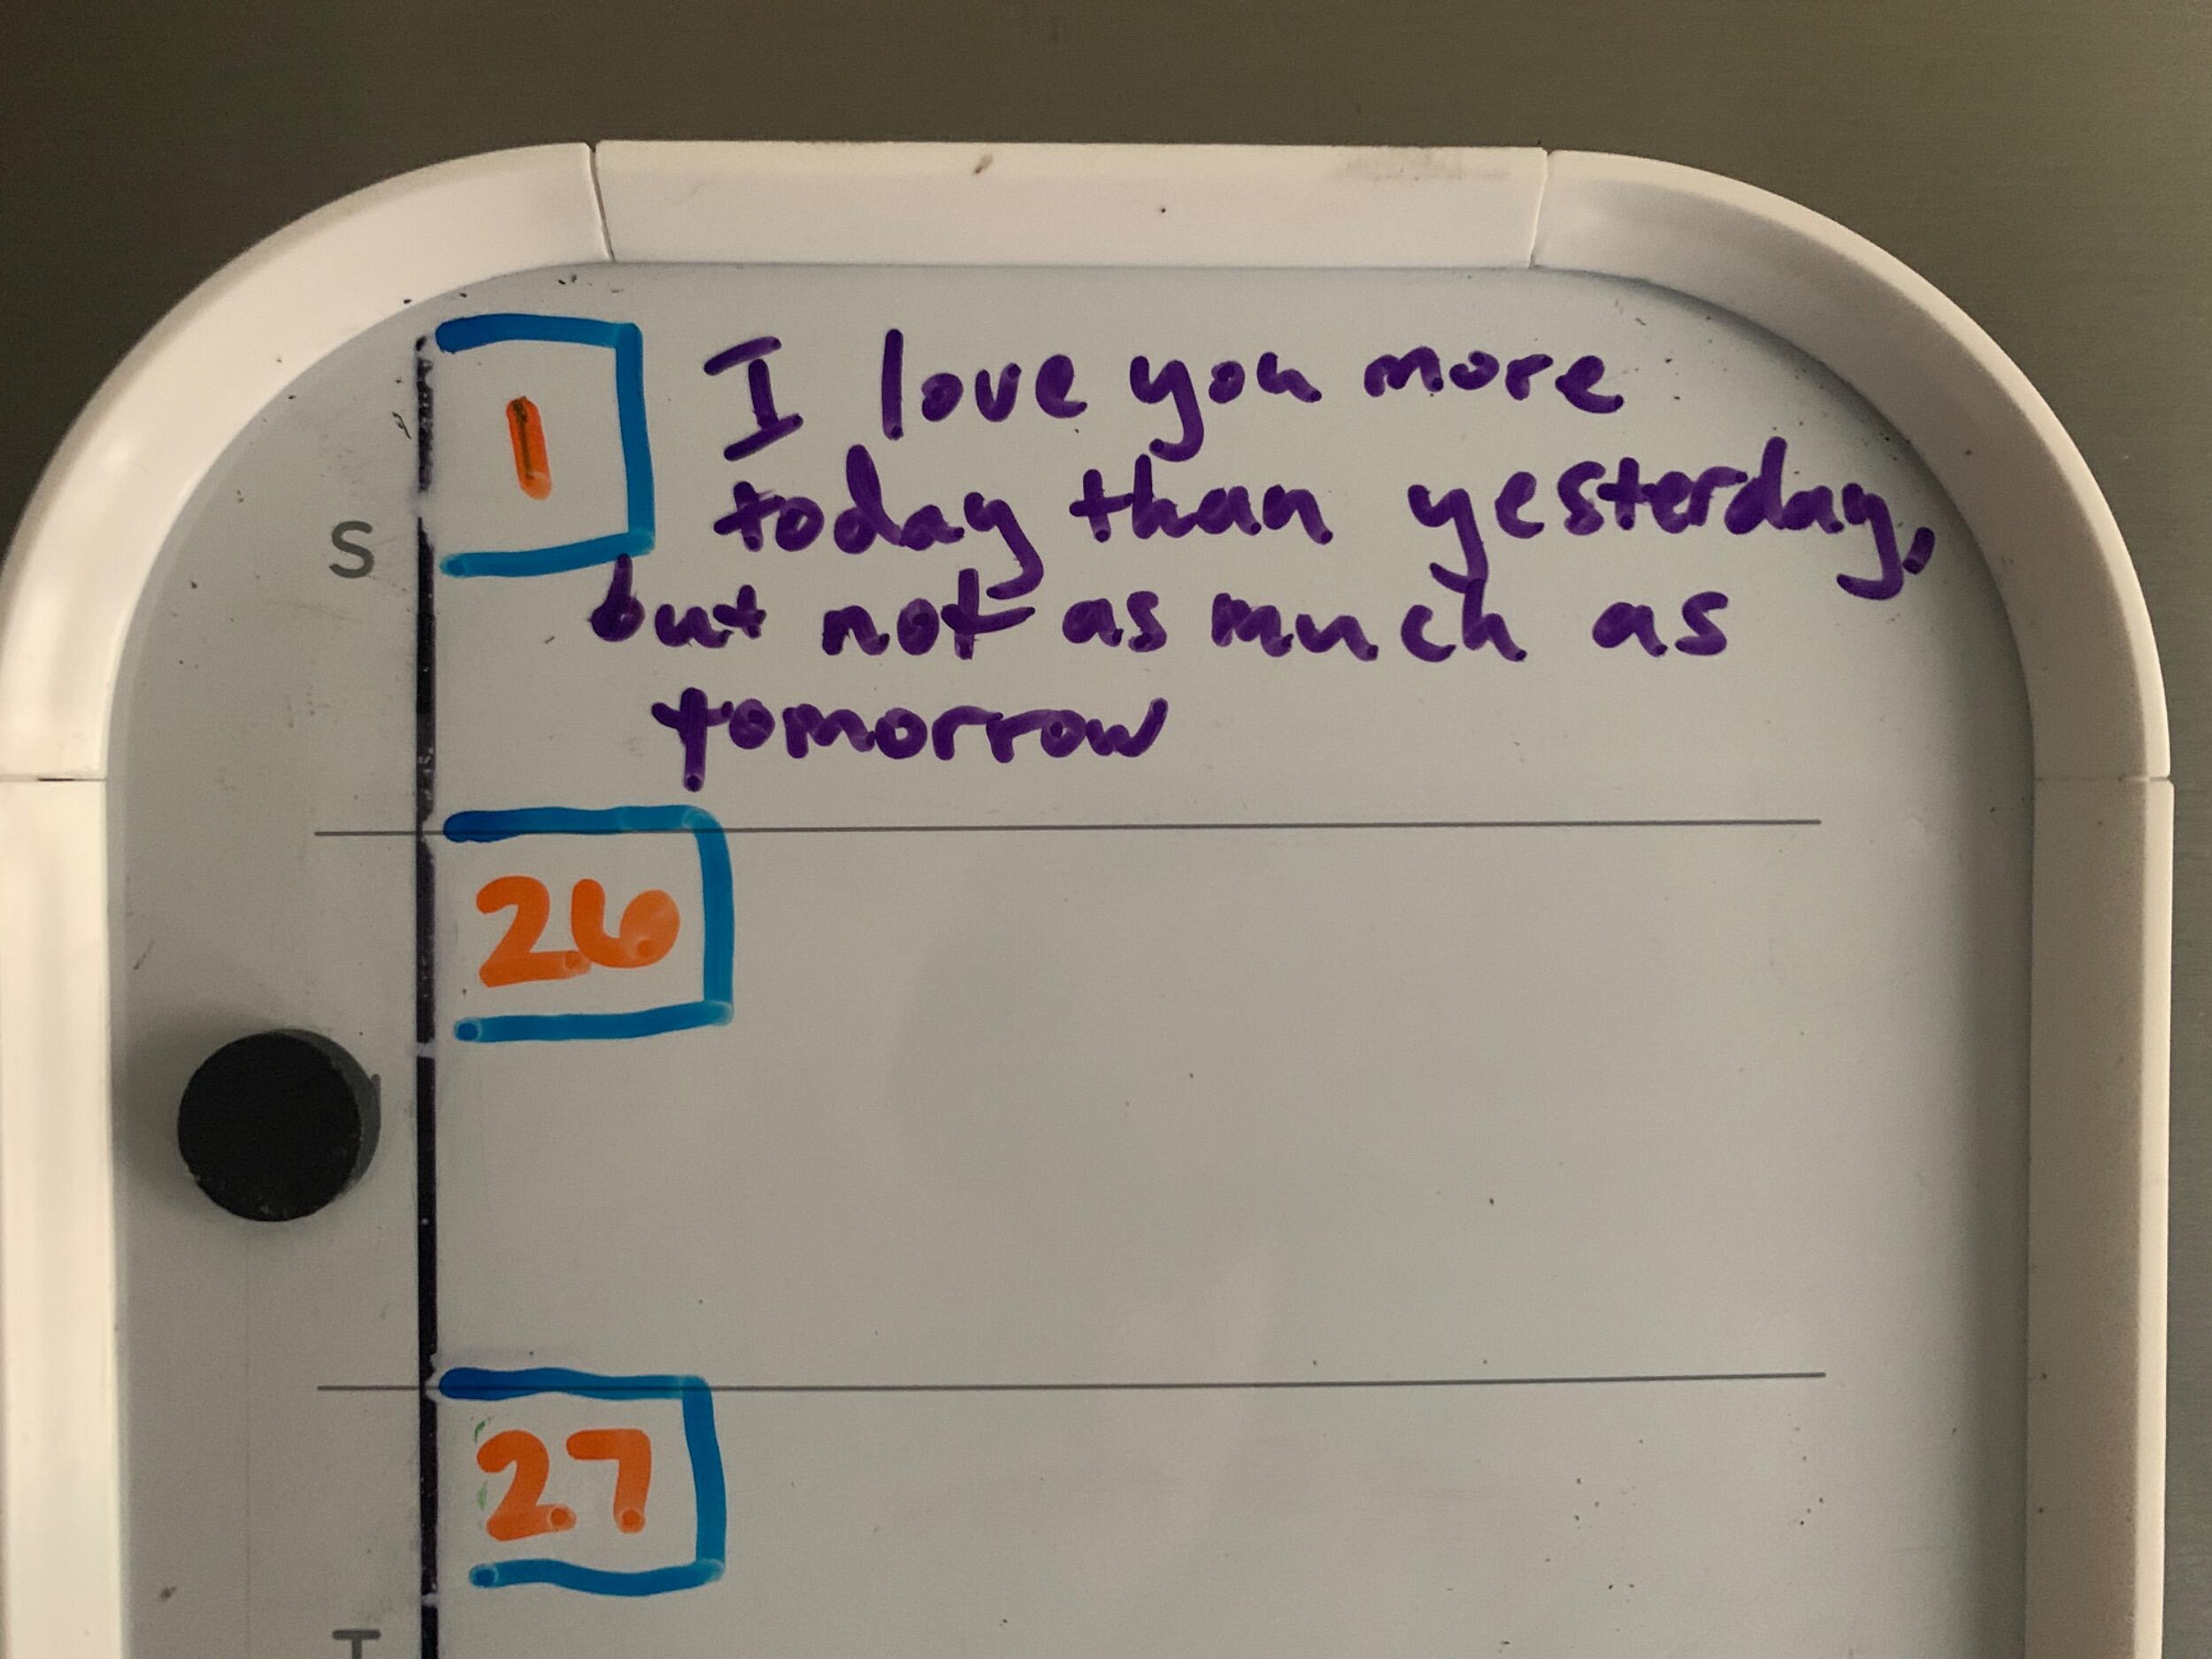 1
I love you more
today than yesterday,
but not as much as
tomorrow
S
26
27
T